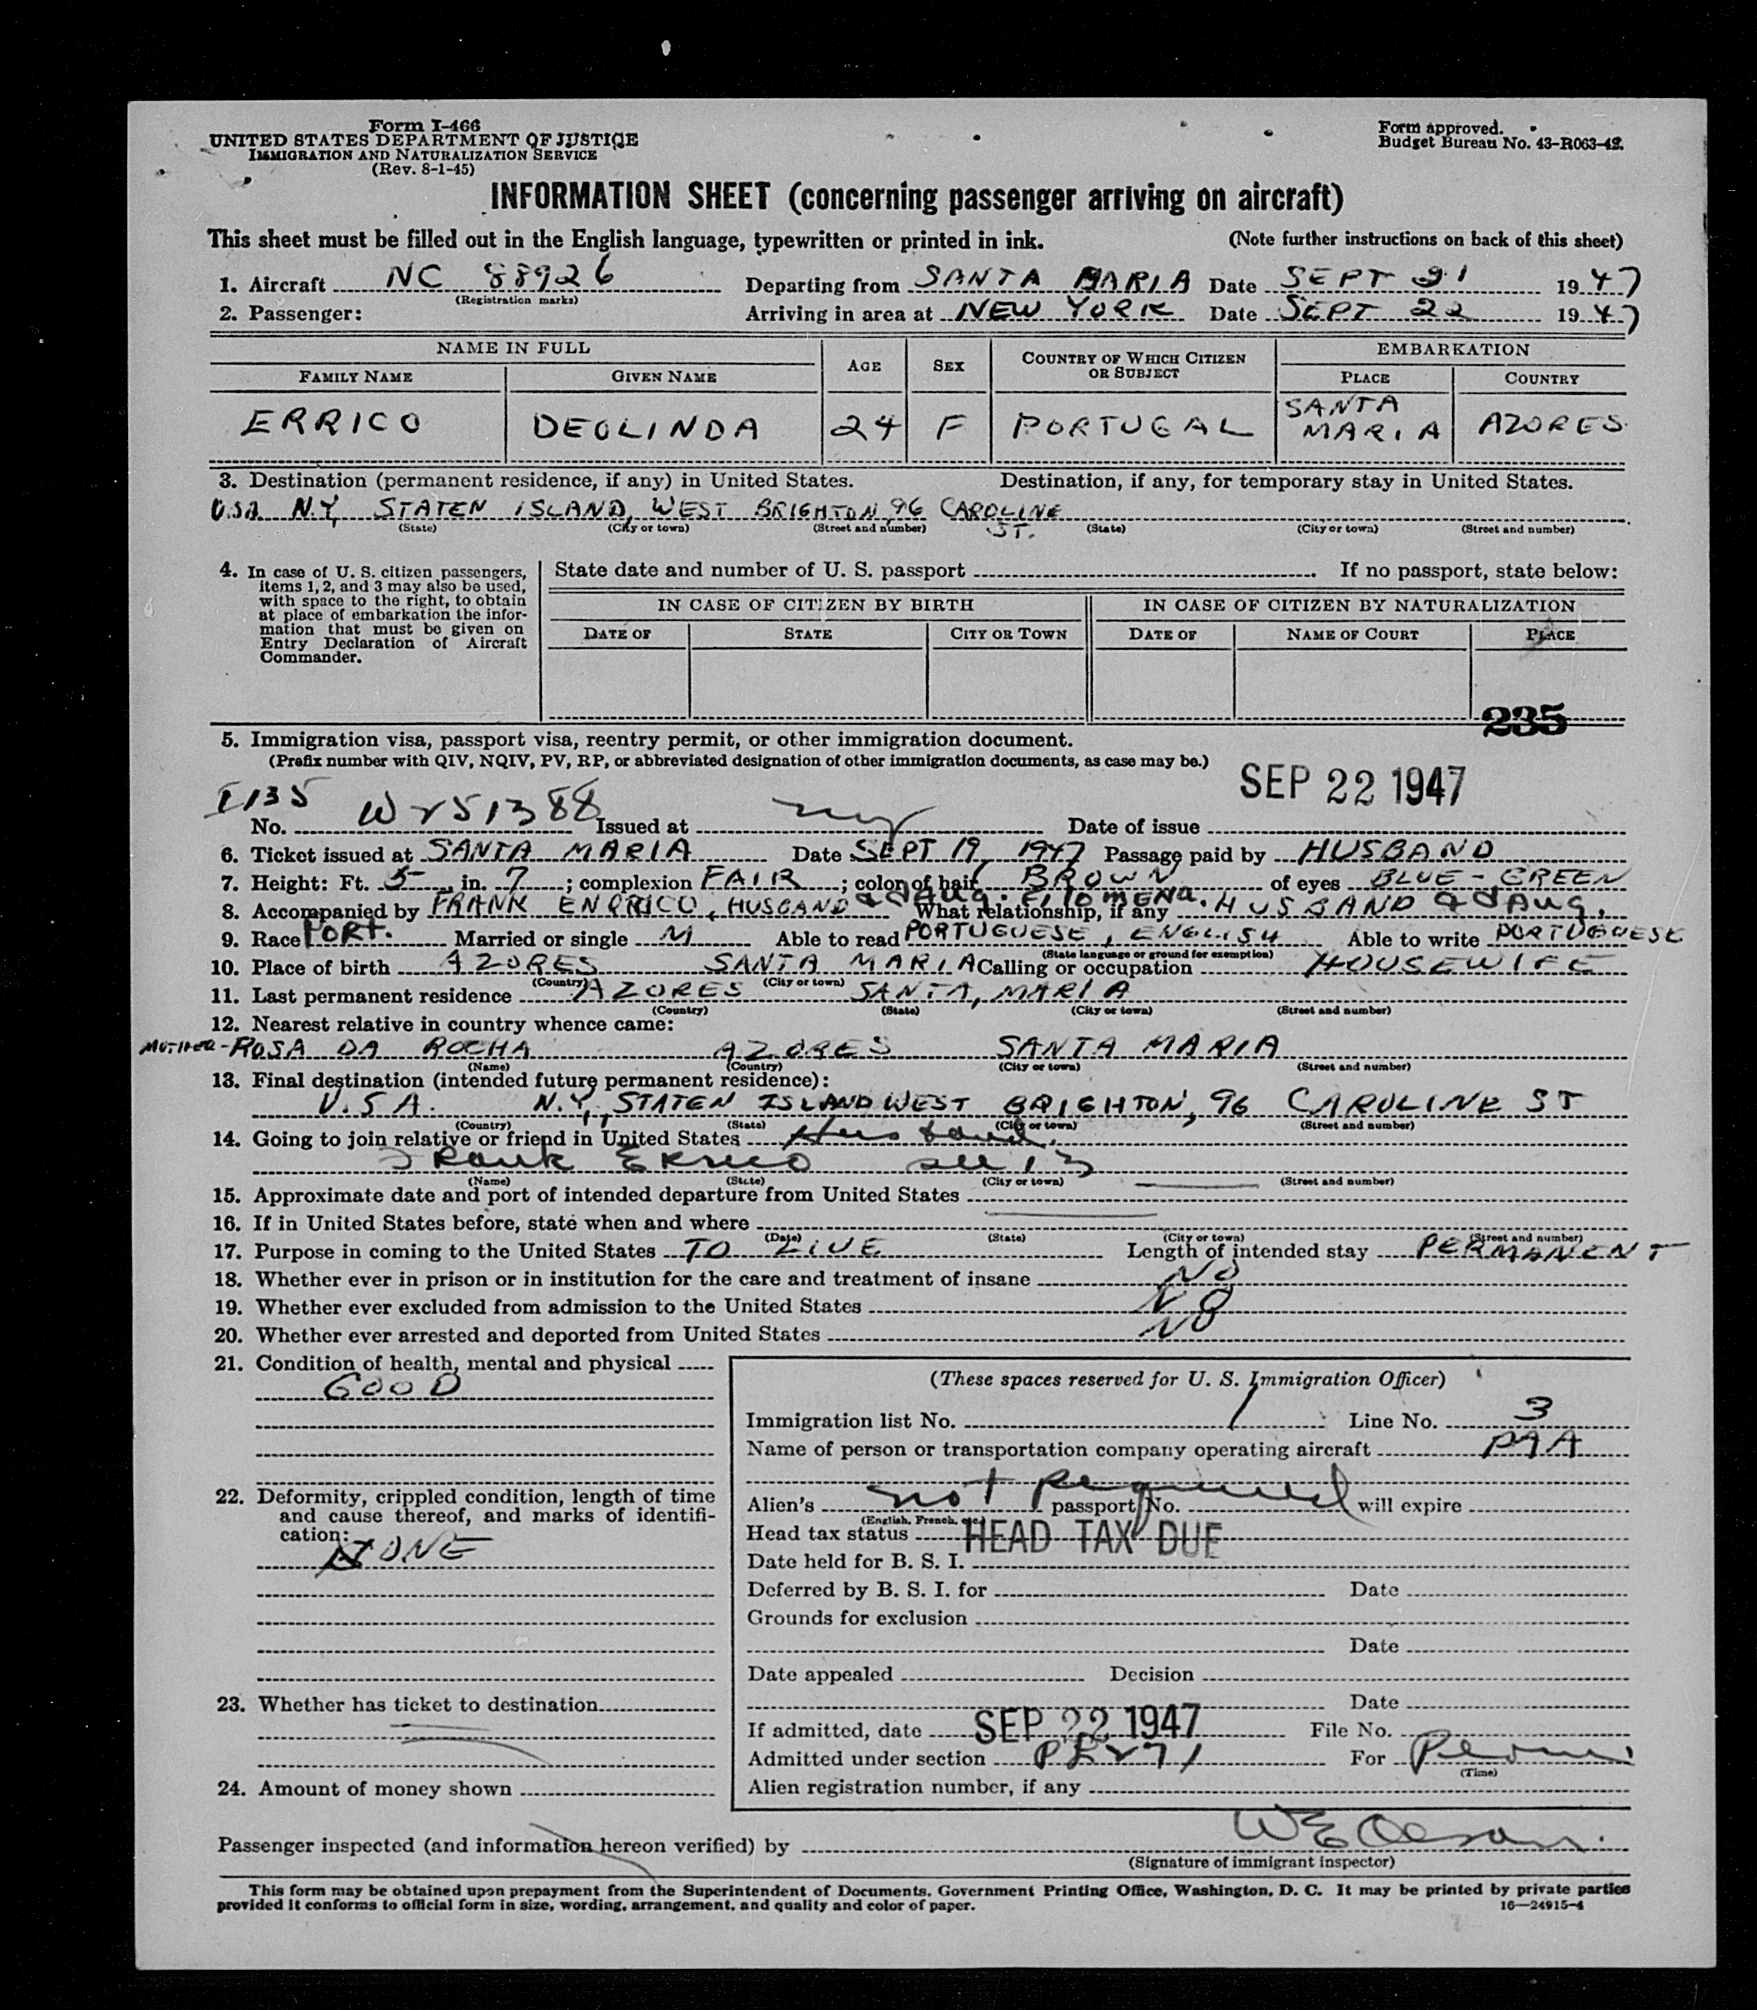 Form I-466
UNITED STATES DEPARTMENT OF JUSTICE
IMMIGRATION AND NATURALIZATION SERVICE
(Rev. 8-1-45)
Form approved.
Budget Bureau No. 43-R063-42.
INFORMATION SHEET (concerning passenger arriving on aircraft)
This sheet must be filled out in the English language, typewritten or printed in ink. (Note further instructions on back of this sheet)
1. Aircraft NC 88926 Departing from SANTA MARIA Date SEPT 21 1947
(Registration marks)
2. Passenger: Arriving in area at NEW YORK Date SEPT 22 1947
NAME IN FULL AGE SEX COUNTRY OF WHICH CITIZEN OR SUBJECT EMBARKATION
FAMILY NAME GIVEN NAME PLACE COUNTRY
ERRICO DEOLINDA 24 F PORTUGAL SANTA MARIA AZORES
3. Destination (permanent residence, if any) in United States. Destination, if any, for temporary stay in United States.
U.S.A. N.Y. STATEN ISLAND, WEST BRIGHTON, 96 CAROLINE ST.
(State) (City or town) (Street and number) (State) (City or town) (Street and number)
4. In case of U. S. citizen passengers,
items 1, 2, and 3 may also be used,
with space to the right, to obtain
at place of embarkation the infor-
mation that must be given on
Entry Declaration of Aircraft
Commander.
State date and number of U. S. passport If no passport, state below:
IN CASE OF CITIZEN BY BIRTH IN CASE OF CITIZEN BY NATURALIZATION
DATE OF STATE CITY OR TOWN DATE OF NAME OF COURT PLACE
235
5. Immigration visa, passport visa, reentry permit, or other immigration document.
(Prefix number with QIV, NQIV, PV, RP, or abbreviated designation of other immigration documents, as case may be.)
SEP 22 1947
I135
No. W251388 Issued at NY Date of issue
6. Ticket issued at SANTA MARIA Date SEPT 19, 1947 Passage paid by HUSBAND
7. Height: Ft. 5 in. 7; complexion FAIR; color of hair BROWN of eyes BLUE-GREEN
8. Accompanied by FRANK ENRRICO, HUSBAND & dAug. FiloMENA. What relationship, if any HUSBAND & dAug.
9. Race PORt. Married or single M Able to read PORTUGUESE, ENGLISH Able to write PORTUGUESE
(State language or ground for exemption)
10. Place of birth AZORES SANTA MARIA Calling or occupation HOUSEWIFE
(Country) (City or town)
11. Last permanent residence AZORES SANTA, MARIA
(Country) (State) (City or town) (Street and number)
12. Nearest relative in country whence came:
MOTHER - ROSA DA ROCHA AZORES SANTA MARIA
(Name) (Country) (City or town) (Street and number)
13. Final destination (intended future permanent residence):
U.S.A. N.Y., STATEN ISLAND WEST BRIGHTON, 96 CAROLINE ST
(Country) (State) (City or town) (Street and number)
14. Going to join relative or friend in United States Husband.
Frank Errico see 13
(Name) (State) (City or town) (Street and number)
15. Approximate date and port of intended departure from United States
16. If in United States before, state when and where
(Date) (State) (City or town) (Street and number)
17. Purpose in coming to the United States TO LIVE Length of intended stay PERMANENT
18. Whether ever in prison or in institution for the care and treatment of insane NO
19. Whether ever excluded from admission to the United States NO
20. Whether ever arrested and deported from United States NO
21. Condition of health, mental and physical
GOOD
22. Deformity, crippled condition, length of time
and cause thereof, and marks of identifi-
cation:
NONE
23. Whether has ticket to destination
24. Amount of money shown
(These spaces reserved for U. S. Immigration Officer)
Immigration list No. 1 Line No. 3
Name of person or transportation company operating aircraft PAA
Alien's not Required passport No. will expire
(English, French, etc.)
Head tax status HEAD TAX DUE
Date held for B. S. I.
Deferred by B. S. I. for Date
Grounds for exclusion
Date
Date appealed Decision
Date
If admitted, date SEP 22 1947 File No.
Admitted under section PL271 For
(Time)
Alien registration number, if any
Passenger inspected (and information hereon verified) by W E Olson
(Signature of immigrant inspector)
This form may be obtained upon prepayment from the Superintendent of Documents, Government Printing Office, Washington, D. C. It may be printed by private parties
provided it conforms to official form in size, wording, arrangement, and quality and color of paper. 16—24915-4